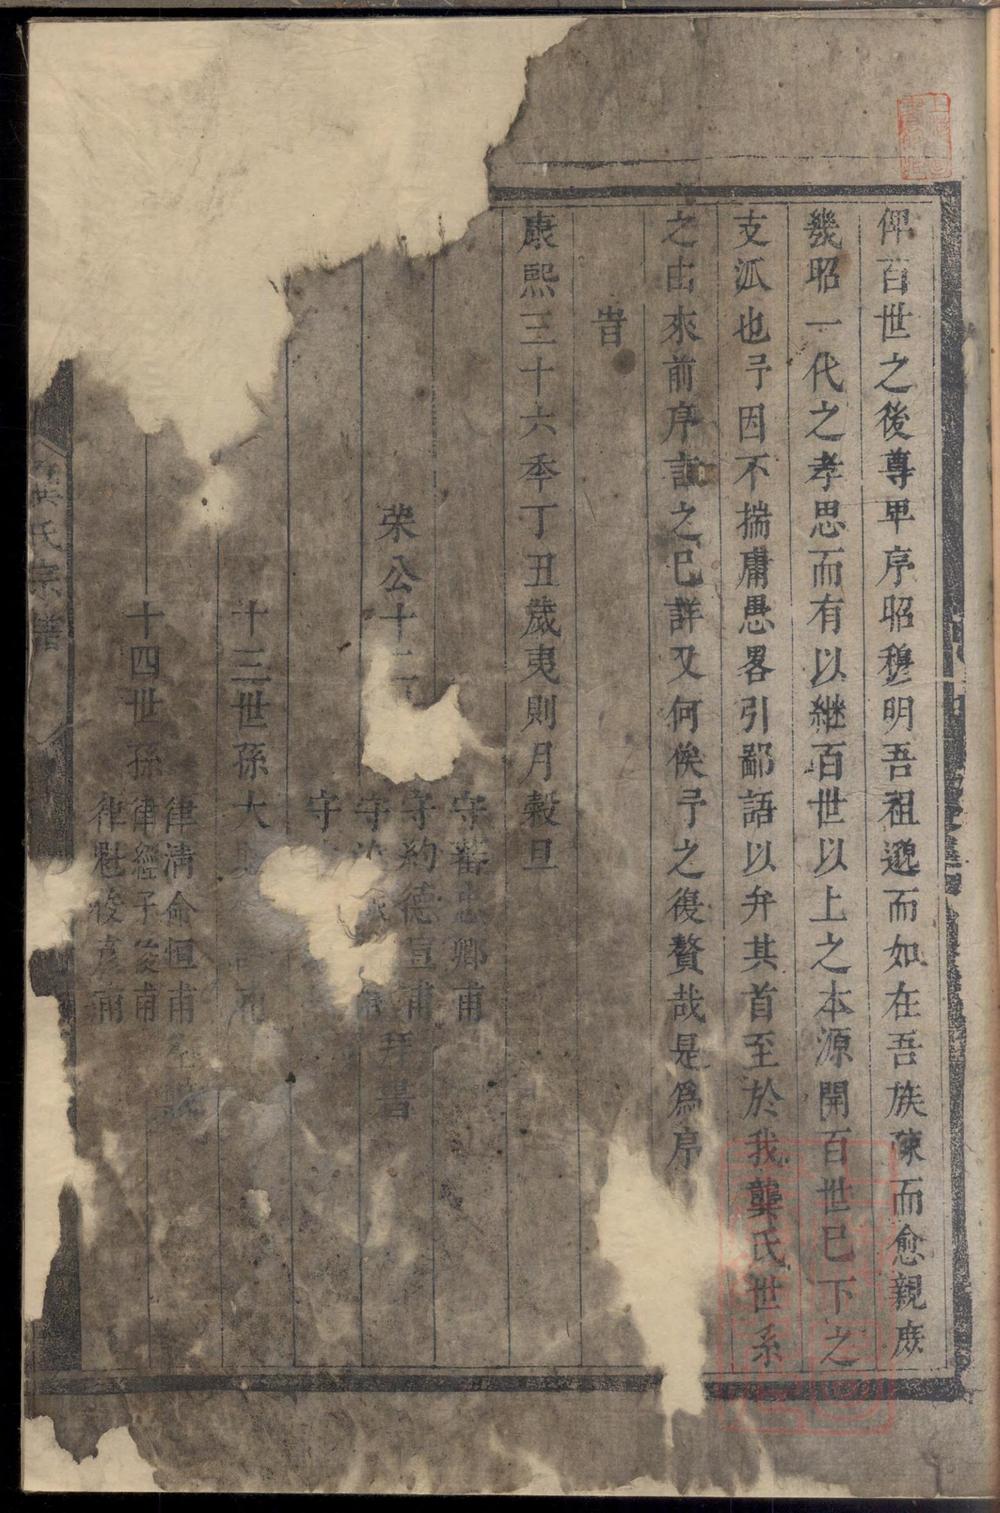 俾百世之後尊卑序昭穆明吾祖邈而如在吾族陳而愈親庶
幾昭一代之孝思而有以継百世以上之本源開百世已下之
支派也予因不揣庸愚畧引鄙語以弁其首至於我龔氏世系
之由來前序言之已詳又何俟予之復贅哉是爲序
旹
康熙三十六季丁丑歲夷則月穀旦
守 忠卿甫
守約德宣甫
榮公十二 守 拜書
守
十三世孫大
律清命恒甫
十四世孫律經子俊甫
律魁俊彥甫
氏宗譜